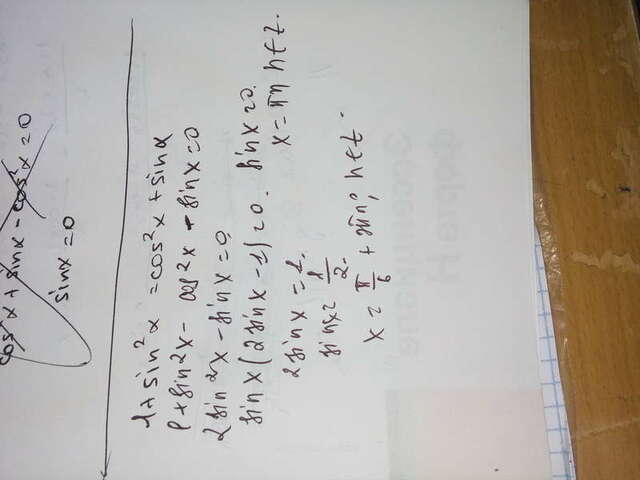 cos²x + sinx - cos²x = 0
sinx = 0
1 + sin²x = cos²x + sinx
1 + sin²x - cos²x - sinx = 0
2sin²x - sinx = 0
sinx(2sinx - 1) = 0. sinx = 0.
x = πn n∈Z.
2sinx = 1.
sinx = 1/2.
x = π/6 + 2πn; n∈Z.